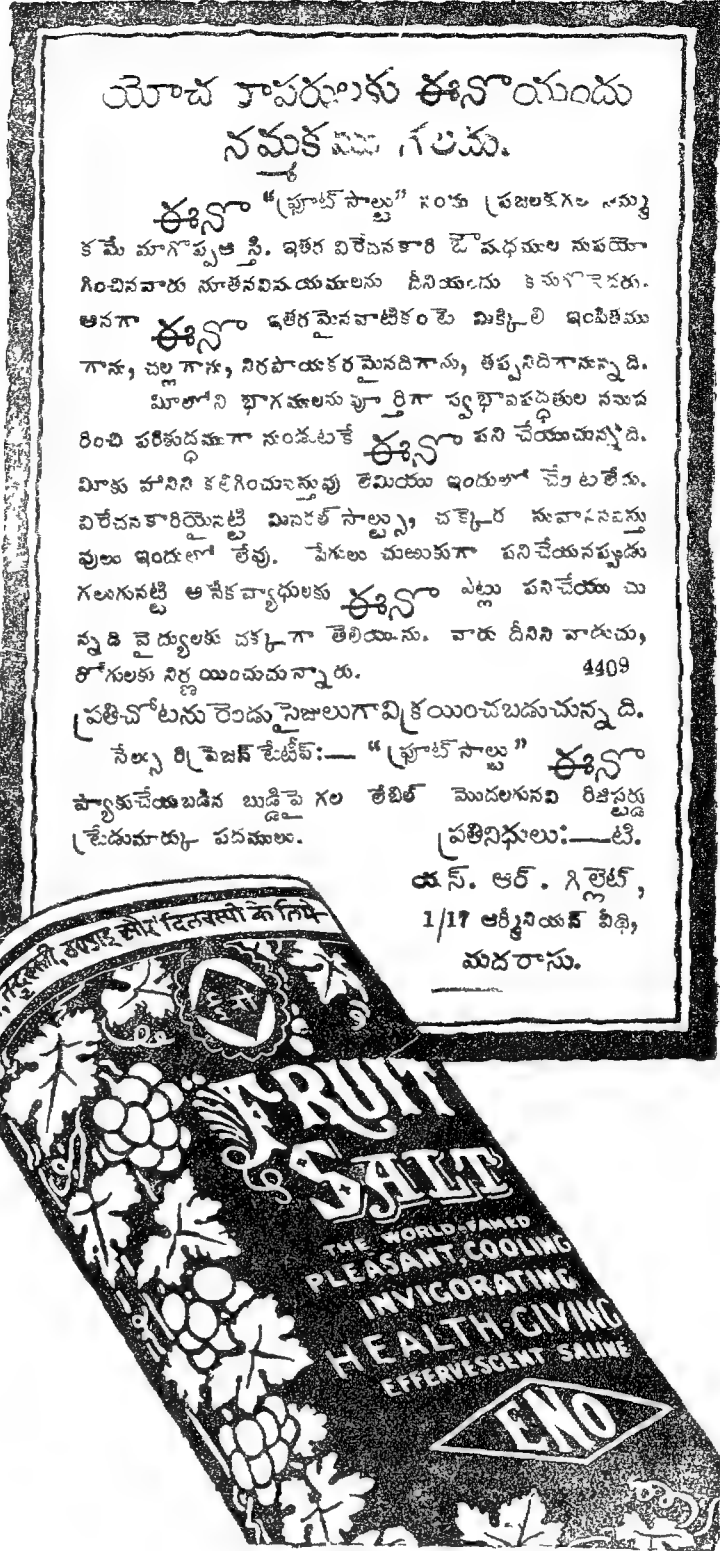 యోచ కాపరులకు ఈనోయందు
నమ్మకము గలదు.
ఈనో “ఫ్రూట్ సాల్టు” నందు ప్రజలకుగల నమ్మ
కమే మాగొప్పఆస్తి. ఇతర విరేచనకారి ఔషధముల నుపయో
గించినవారు నూతనవిషయములను దీనియందు కనుగొనెదరు.
అనగా ఈనో ఇతరమైనవాటికంటె మిక్కిలి ఇంపితము
గాను, చల్లగాను, నిరపాయకరమైనదిగాను, తప్పనిదిగానున్నది.
మీలోని భాగములను పూర్తిగా స్వభావపద్ధతుల ననుస
రించి పరిశుద్ధముగా నుండుటకే ఈనో పని చేయుచున్నది.
మీకు హానిని కలిగించువస్తువు లేమియు ఇందులో చేర్చటలేదు.
విరేచనకారియైనట్టి మినరల్ సాల్ట్సు, చక్కెర సువాసనవస్తు
వులు ఇందులో లేవు. పేగులు చురుకుగా పనిచేయనప్పుడు
గలుగునట్టి అనేకవ్యాధులకు ఈనో ఎట్లు పనిచేయు చు
న్నది వైద్యులకు చక్కగా తెలియును. వారు దీనిని వాడుచు,
రోగులకు నిర్ణయించుచున్నారు. 4409
ప్రతిచోటను రెండుసైజులుగా విక్రయించబడుచున్నది.
సేల్సు రిప్రెజెన్ టేటీవ్:— “ఫ్రూట్ సాల్టు” ఈనో
ప్యాకుచేయబడిన బుడ్డిపై గల లేబిల్ మొదలగునవి రిజిస్టర్డు
ట్రేడుమార్కు పదములు. ప్రతినిధులు:—టి.
యస్. ఆర్. గిల్లెట్,
1/17 ఆర్మీనియన్ వీథి,
మదరాసు.
तन्दुरुस्ती, और दिलचस्पी के लिये
FRUIT
SALT
THE WORLD-FAMED
PLEASANT, COOLING
INVIGORATING
HEALTH-GIVING
EFFERVESCENT SALINE
ENO